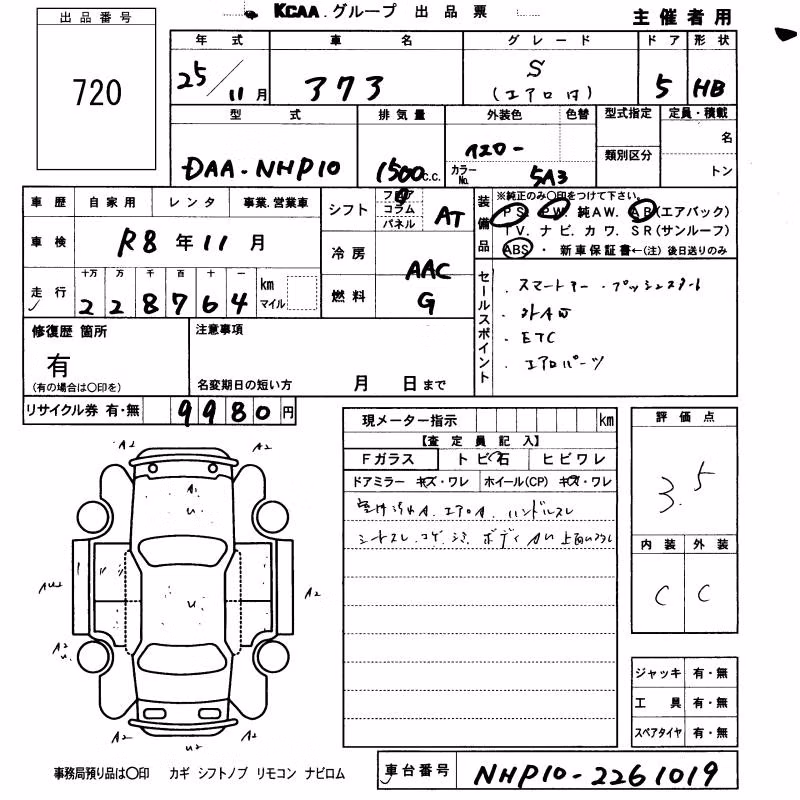 KCAA.グループ 出品票
主催者用
出品番号
720
年式 車名 グレード ドア 形状
25/11月 373 S (エアロ付) 5 HB
型式 排気量 外装色 色替 型式指定 定員・積載
名
類別区分
トン
DAA-NHP10 1500c.c. カラーNo. 5A3
車歴 自家用 レンタ 事業.営業車
車検 R8年11月
走行 十万 万 千 百 十 一 km マイル
228764
シフト フロア コラム パネル AT
冷房 AAC
燃料 G
装備品
※純正のみ○印をつけて下さい。
PS. PW. 純AW. AB(エアバック)
TV. ナビ. カワ. SR(サンルーフ)
ABS・ 新車保証書←(注) 後日送りのみ
セールスポイント
・スマートキー ・プッシュスタート
・ETC
・エアロパーツ
修復歴 箇所
有
(有の場合は○印を)
注意事項
名変期日の短い方 月 日まで
リサイクル券 有・無 9980円
現メーター指示 km
【査定員記入】
Fガラス トビ石 ヒビワレ
ドアミラー キズ・ワレ ホイール(CP) キズ・ワレ
エアロA. ハンドルスレ
シートスレ.コゲ.シミ ボディAU
評価点
3.5
内装 外装
C C
A2 A2
A1
U
AU2 U A2
A2 U. A2
A2 U2 A2
ジャッキ 有・無
工具 有・無
スペアタイヤ 有・無
事務局預り品は○印 カギ シフトノブ リモコン ナビロム
車台番号 NHP10-2261019